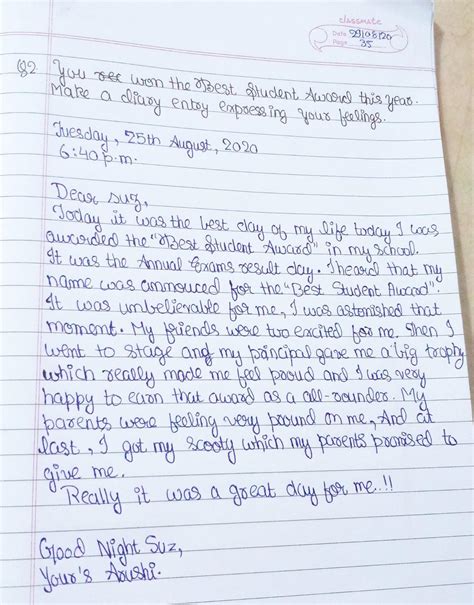 classmate
Date 29/08/20
Page 35
Q2 You won the Best Student Award this year.
Make a diary entry expressing your feelings.
Tuesday, 25th August, 2020
6:40 p.m.
Dear suz,
Today it was the best day of my life today I was
awarded the "Best Student Award" in my school.
It was the Annual Exams result day. I heard that my
name was announced for the "Best Student Award".
It was unbelievable for me, I was astonished that
moment. My friends were too excited for me. Then I
went to stage and my principal gave me a big trophy
which really made me feel proud and I was very
happy to earn that award as a all-rounder. My
parents were feeling very pround on me, And at
last, I got my scooty which my parents promised to
give me.
Really it was a great day for me..!!
Good Night Suz,
Your's Arushi.